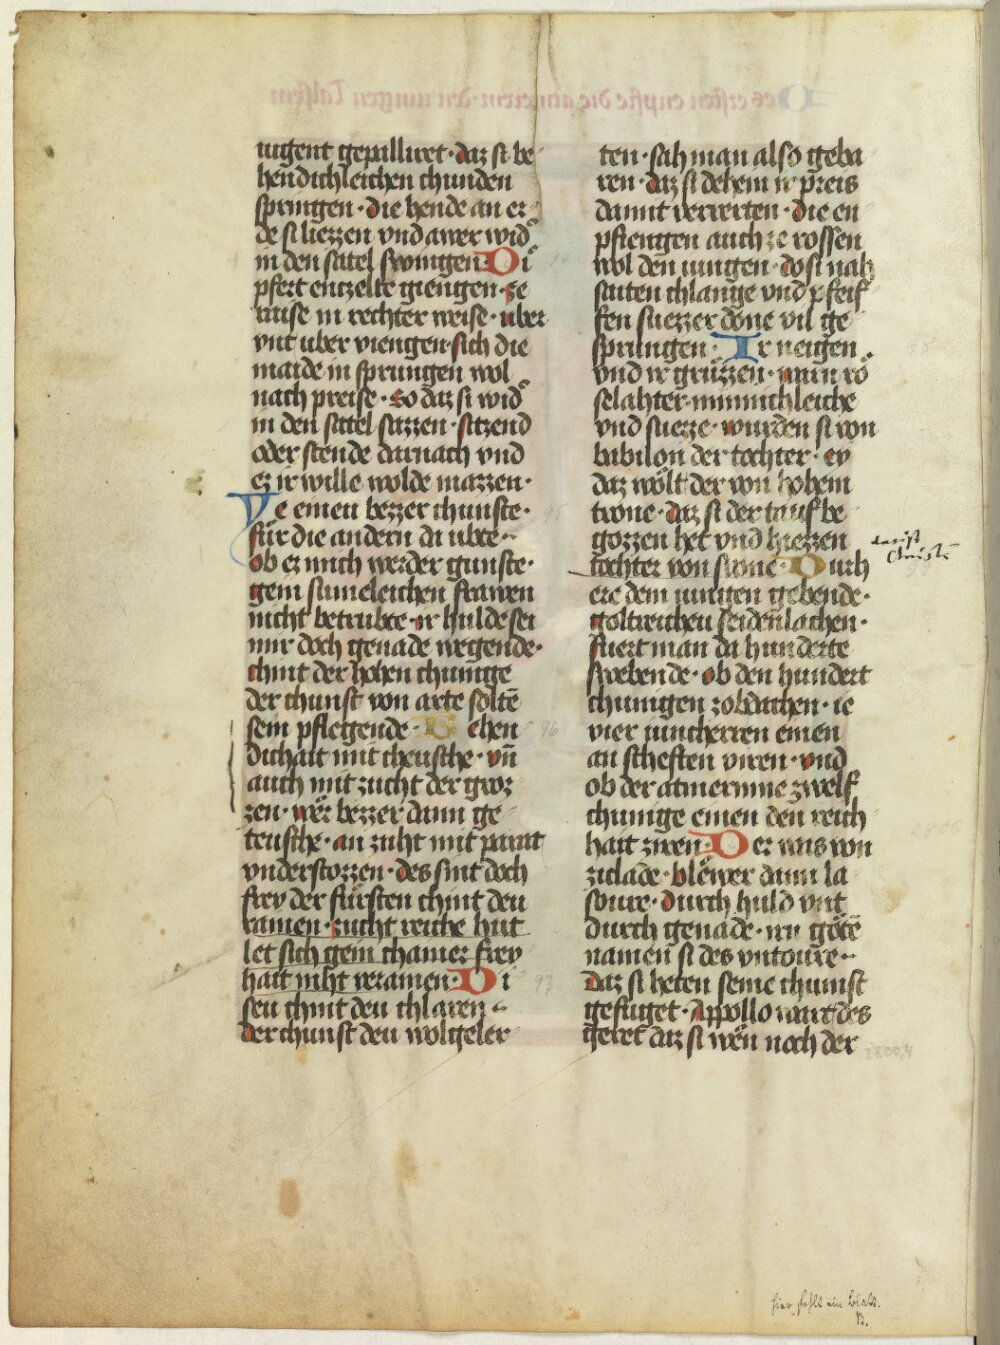 iugent gepalliret · daz si be
hendichleichen chunden
springen · die hende an er
de si liezzen vnd awer wid
in den satel swingen · Di
pfert enzelte giengen · ze
taise in rechter weise · uber
vnt uber viengen · sich die
maide in sprungen wol
nach preise · so daz si wid
in den satel sazzen · sitzend
oder stende darnach vnd
ez ir wille wolde mazzen ·
Ye einen bezzer chunste ·
für die andern da ubte ·
ob ez mich werder gunste ·
gein sumeleichen frawen
nicht betrubte · ir hulde sei
mir doch genade wegende ·
chint der hohen chunige
der chunst von arte solte
sein pflegende · Behen
dichait mit cheusche · vn
auch mit zucht der groz
zen · wer bezzer dann ge
teusche · an zuht mit parat
vnderstozzen · des sint doch
frey der fürsten chint den
ramen · zucht reiche hut
let sich gein chamer frey
hait niht veramen · Di
sen chint den chlaren
der chunst den wolgeler
ten · sah man also geba
ren · daz si dehein ir preis
damit verrerten · die en
pfiengen auch ze rossen
wol den iungen · do si nah
saiten chlange vnd pfeif
fen suezzer done vil ge
sprungen · Ir neigen
vnd ir grüzzen · min rö
selahter minnichleiche
vnd suezze · wurden si von
babilon der tochter · ey
daz wölt der von hohem
trone · daz si der tauf be
gozzen het vnd hiezzen
tochter von sione · Durh
ere dem iungen gebende ·
goltreichen seiden lachen ·
fuert man da hunderte
swebende · ob den hundert
chunigen zobdachen · ie
vier iuncherren einen
an scheften viren · vnd
ob der atmerinne zwelf
chunige einen den reich
hait ziren · Der was von
ziclade · blewer dann la
soure · durch huld vnt
durch genade · irn göte
namen si des vntoure
daz si heten seine chunst
gefuget · Appollo wart des
geret daz si wen noch der
das ist
Christi
hier fehlt ein Blatt.